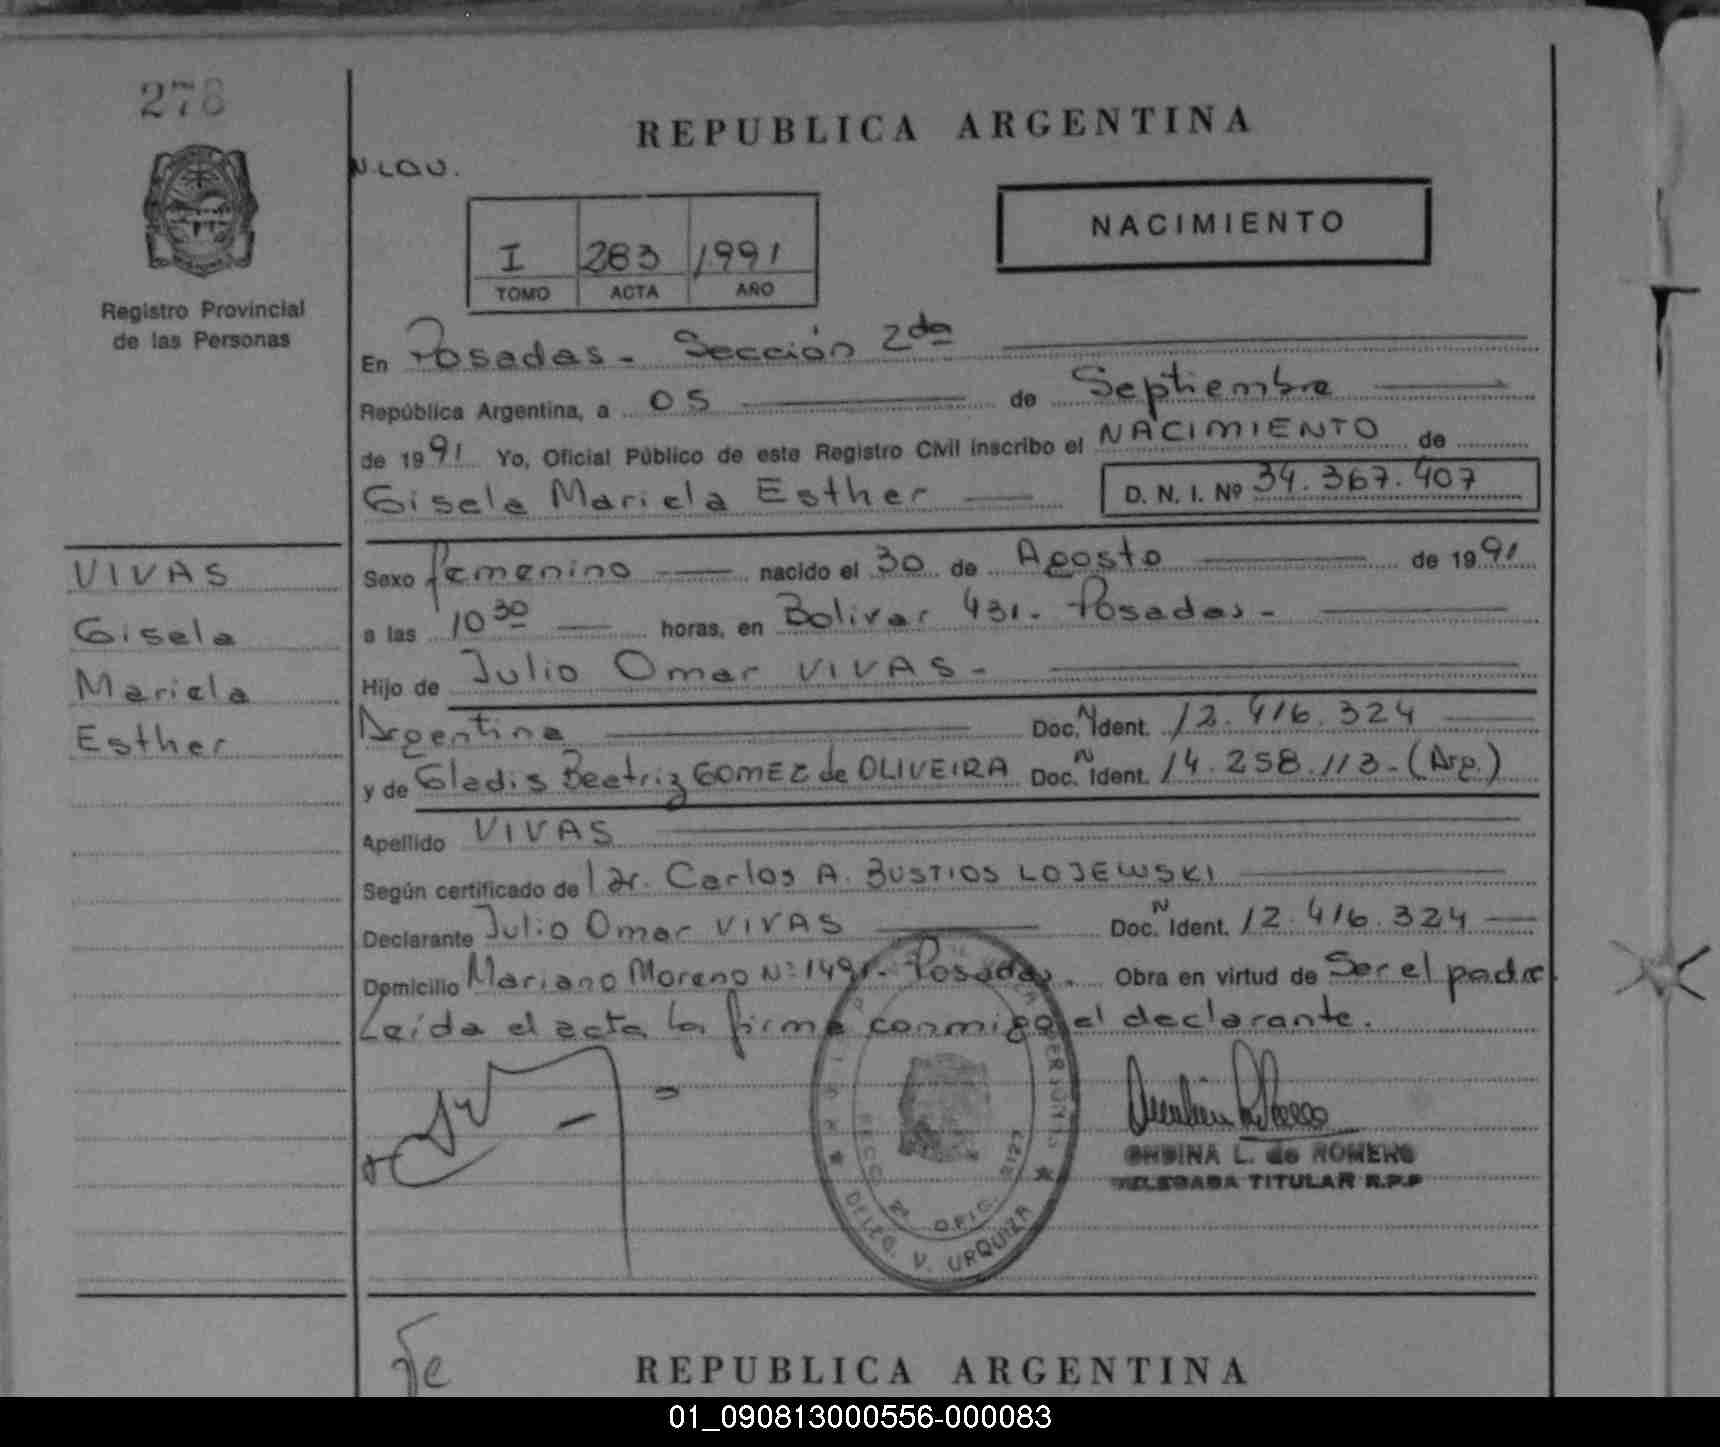 278
REPUBLICA ARGENTINA
N.LQU.
NACIMIENTO
I 283 1991
TOMO ACTA AÑO
Registro Provincial
de las Personas
En Posadas - Sección 2da
República Argentina, a 05 de Septiembre
de 1991 Yo, Oficial Público de este Registro Civil inscribo el NACIMIENTO de
Gisela Mariela Esther D. N. I. Nº 34.367.407
VIVAS
Gisela
Mariela
Esther
Sexo femenino nacido el 30 de Agosto de 1991
a las 10 30 horas, en Bolivar 431 - Posadas -
Hijo de Julio Omar VIVAS -
Argentina Doc. N Ident. 12.416.324
y de Gladis Beatriz GOMEZ de OLIVEIRA Doc. N Ident. 14.258.113 - (Arg.)
Apellido VIVAS
Según certificado de Dr. Carlos A. BUSTIOS LOJEWSKI
Declarante Julio Omar VIVAS Doc. N Ident. 12.416.324
Domicilio Mariano Moreno Nº 1491 - Posadas. Obra en virtud de Ser el padre.
Leída el acta la firma conmigo el declarante.
SECC. 2ª OFIC. 2127
DELEG. V. URQUIZA
ONDINA L. de ROMERO
DELEGADA TITULAR R.P.P
REPUBLICA ARGENTINA
01_090813000556-000083